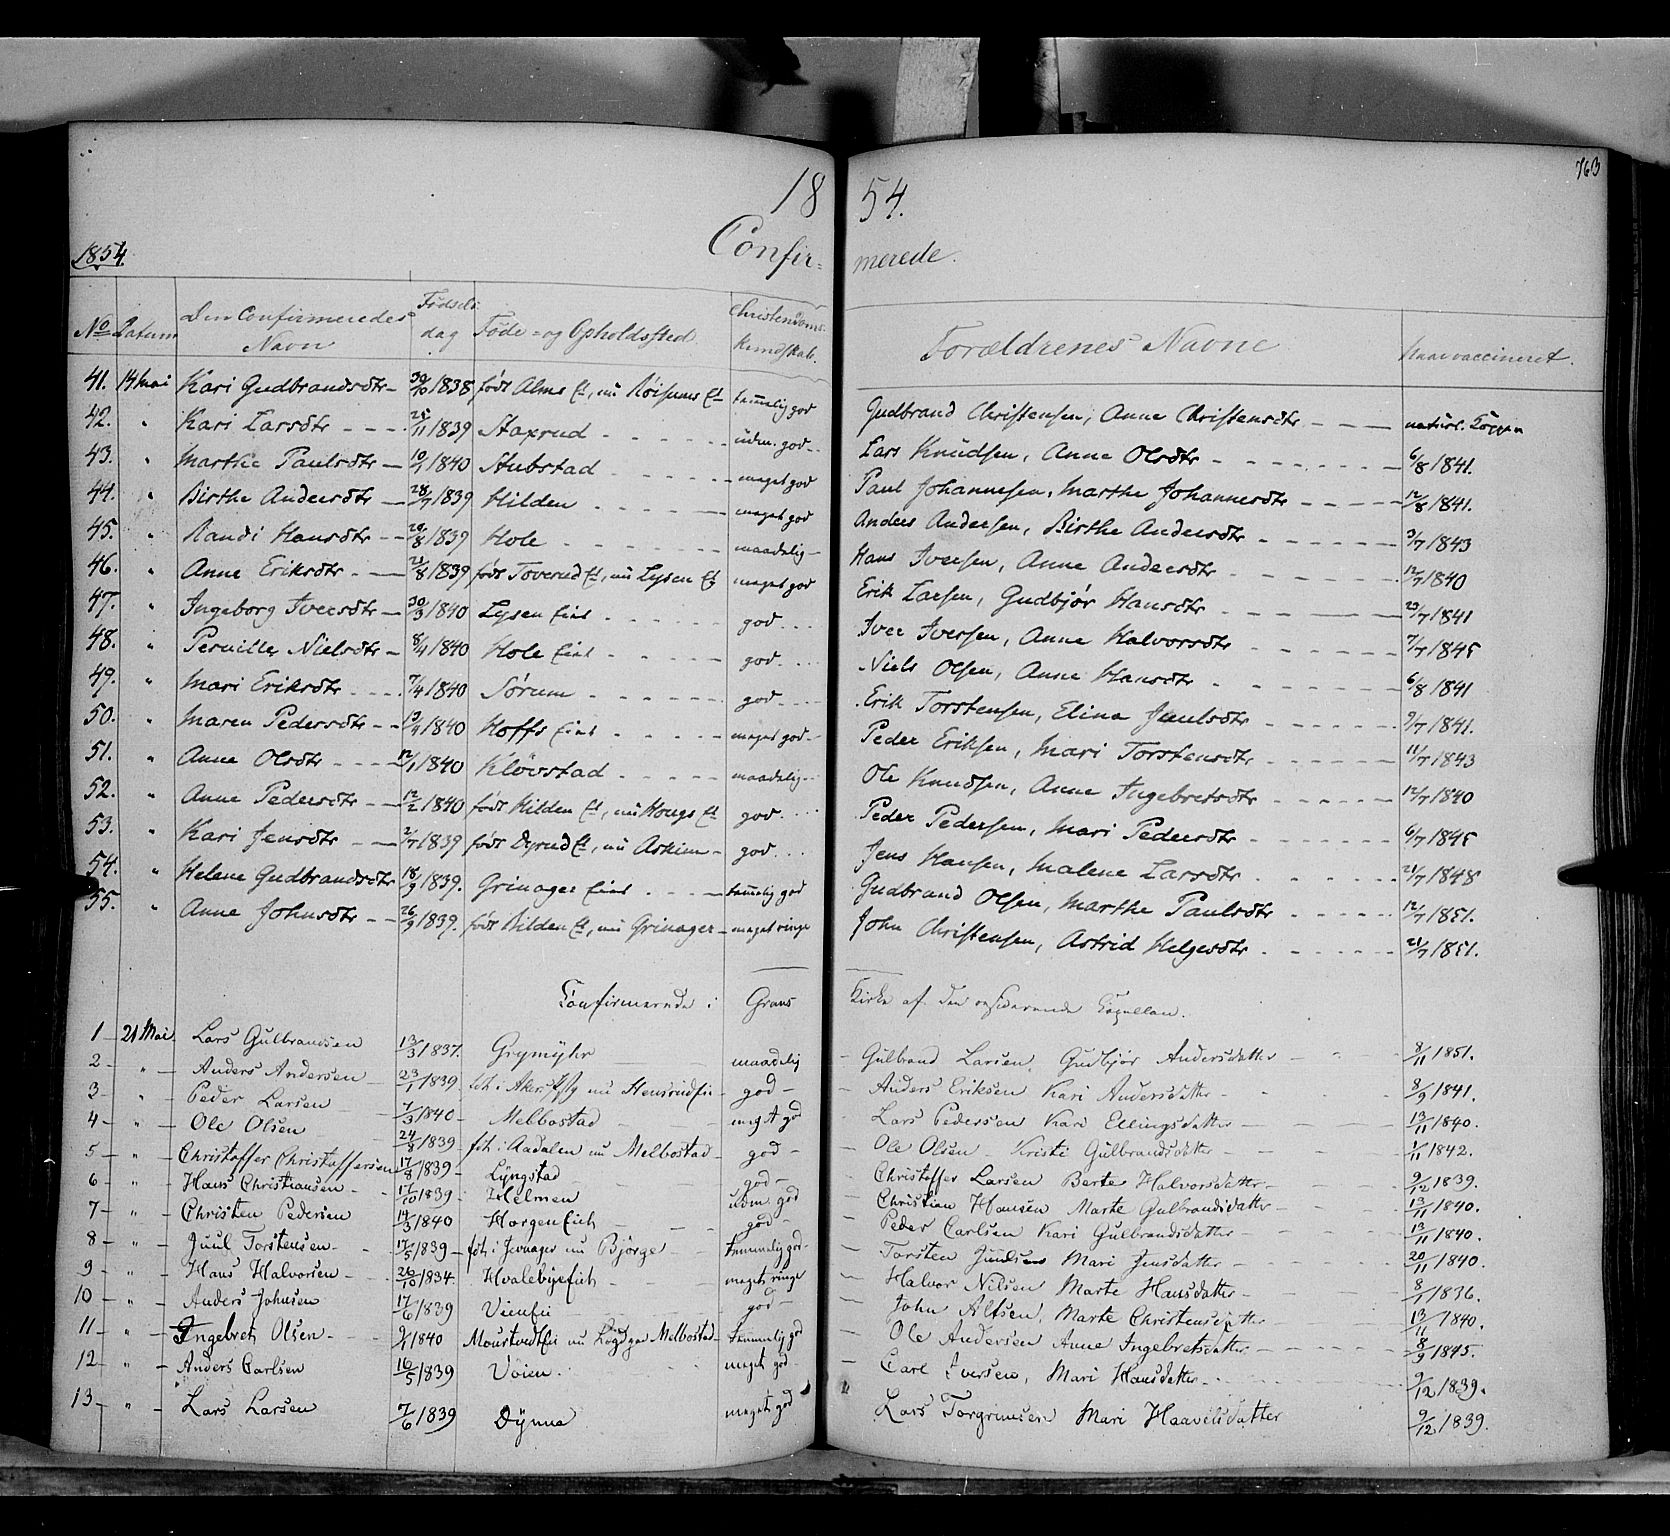 763
18 54.
1854.
Confir- merede.
No Datum Den Confirmeredes Navn Fødselsdag Føde- og Opholdssted Christendoms-Kundskab. Forældrenes Navne Naar vaccineret.
41. 14 Mai Kari Gudbrandsdtr 30/10 1838 født Alms Et, nu Røisums Et temmelig god Gudbrand Christensen, Anne Christensdtr naturl. Kopper
42. " Kari Larsdtr 25/11 1839 Staxrud udm. god Lars Knudsen, Anne Olsdtr 6/8 1841.
43. " Marthe Paulsdtr 10/1 1840 Stubstad meget god Paul Johannesen, Marthe Johannesdtr 12/8 1841.
44. " Birthe Andersdtr 28/7 1839 Hilden meget god Anders Andersen, Birthe Andersdtr 3/7 1843
45. " Randi Hansdtr 29/8 1839 Hole maadelig Hans Iversen, Anne Andersdtr 12/7 1840
46. " Anne Eriksdtr 21/8 1839 født Toverud Et, nu Lysen Et meget god Erik Larsen, Gudbjør Hansdtr 23/7 1841
47. " Ingeborg Iversdtr 30/3 1840 Lysen Eiet god Iver Iversen, Anne Halvorsdtr 7/7 1845
48. " Pernille Nielsdtr 8/4 1840 Hole Eiet god Niels Olsen, Anne Hansdtr 6/8 1841
49. " Mari Eriksdtr 7/4 1840 Sørum god Erik Torstensen, Elina Juulsdtr 9/7 1841.
50. " Maren Pedersdtr 13/4 1840 Hoffs Eiet meget god Peder Eriksen, Mari Torstensdtr 11/7 1843
51. " Anne Olsdtr 12/1 1840 Kløvstad maadelig Ole Knudsen, Anne Ingebretsdtr 12/7 1840
52. " Anne Pedersdtr 12/2 1840 født Hilden Et, nu Hougs Et god Peder Pedersen, Mari Pedersdtr 6/7 1845
53. " Kari Jensdtr 2/7 1839 født Dyrud Et, nu Askim god Jens Hansen, Malene Larsdtr 21/7 1848
54. " Helene Gudbrandsdtr 18/9 1839. Grinager Eiet temmelig god Gudbrand Olsen, Marthe Paulsdtr 12/7 1851.
55. " Anne Johnsdtr 26/9 1839. født Bilden Et, nu Grinager meget ringe John Christensen, Astrid Helgesdtr 21/7 1851.
Confirmerede i Grans Kirke af den residerende Capellan.
1 21 Mai Lars Gulbrandsen 13/3 1837. Grymyhr maadelig Gulbrand Larsen, Gudbjør Andersdatter 8/11 1851.
2 " Anders Andersen 23/1 1839 fdt i Aker, nu Hensrudeie god Anders Eriksen Kari Andersdatter 8/9 1841.
3 " Peder Larsen 7/3 1840 Melbostad meget god Lars Pedersen Kari Ellingsdatter 13/11 1840.
4 " Ole Olsen 24/8 1839 fdt i Aadalen nu Melbostad god Ole Olsen Kristi Gulbrandsdatter 1/11 1842.
5 " Christoffer Christoffersen 17/8 1839 Lyngstad god Christoffer Larsen Berte Halvorsdatter 9/12 1839.
6 " Hans Christiansen 17/10 1839 Helmen udm. god Christian Hansen Marte Gulbrandsdatter 13/11 1840.
7 " Christen Pedersen 14/3 1840 Horgen Eich god Peder Carlsen Kari Gulbrandsdatter 13/11 1840.
8 " Juul Torstensen 17/5 1839 fdt i Jevnager nu Bjørge temmelig god Torsten Juulsen Mari Jensdatter 20/11 1840.
9 " Hans Halvorsen 26/10 1834. Hvalebyeeich meget ringe Halvor Nilsen Marte Hansdatter 8/1 1836.
10 " Anders Johnsen 17/6 1839 Vieneie god John Alfsen, Marte Christensdatter 13/11 1840.
11 " Ingebret Olsen 9/1 1840 Mourtvedteie nu Melbostad temmelig god Ole Andersen Anne Ingebretsdatter 8/9 1845.
12 " Anders Carlsen 16/5 1839 Vøien meget god Carl Iversen, Mari Hansdatter 9/12 1839.
13 " Lars Larsen 7/6 1839 Dynna meget god Lars Torgrimsen Mari Haavelsdatter 9/12 1839.